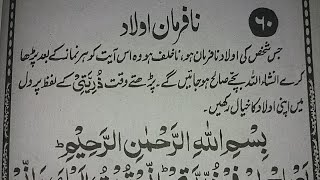 ۶۰
نافرمان اولاد
جس شخص کی اولاد نافرمان ہو، ناخلف ہو وہ اس آیت کو ہر نماز کے بعد پڑھا
کرے انشاء اللہ بچے صالح ہو جائیں گے۔ پڑھتے وقت ذُرِّیَّتِیْ کے لفظ پر دل
میں اپنی اولاد کا خیال رکھیں۔
بِسْمِ اللهِ الرَّحْمٰنِ الرَّحِيْمِ